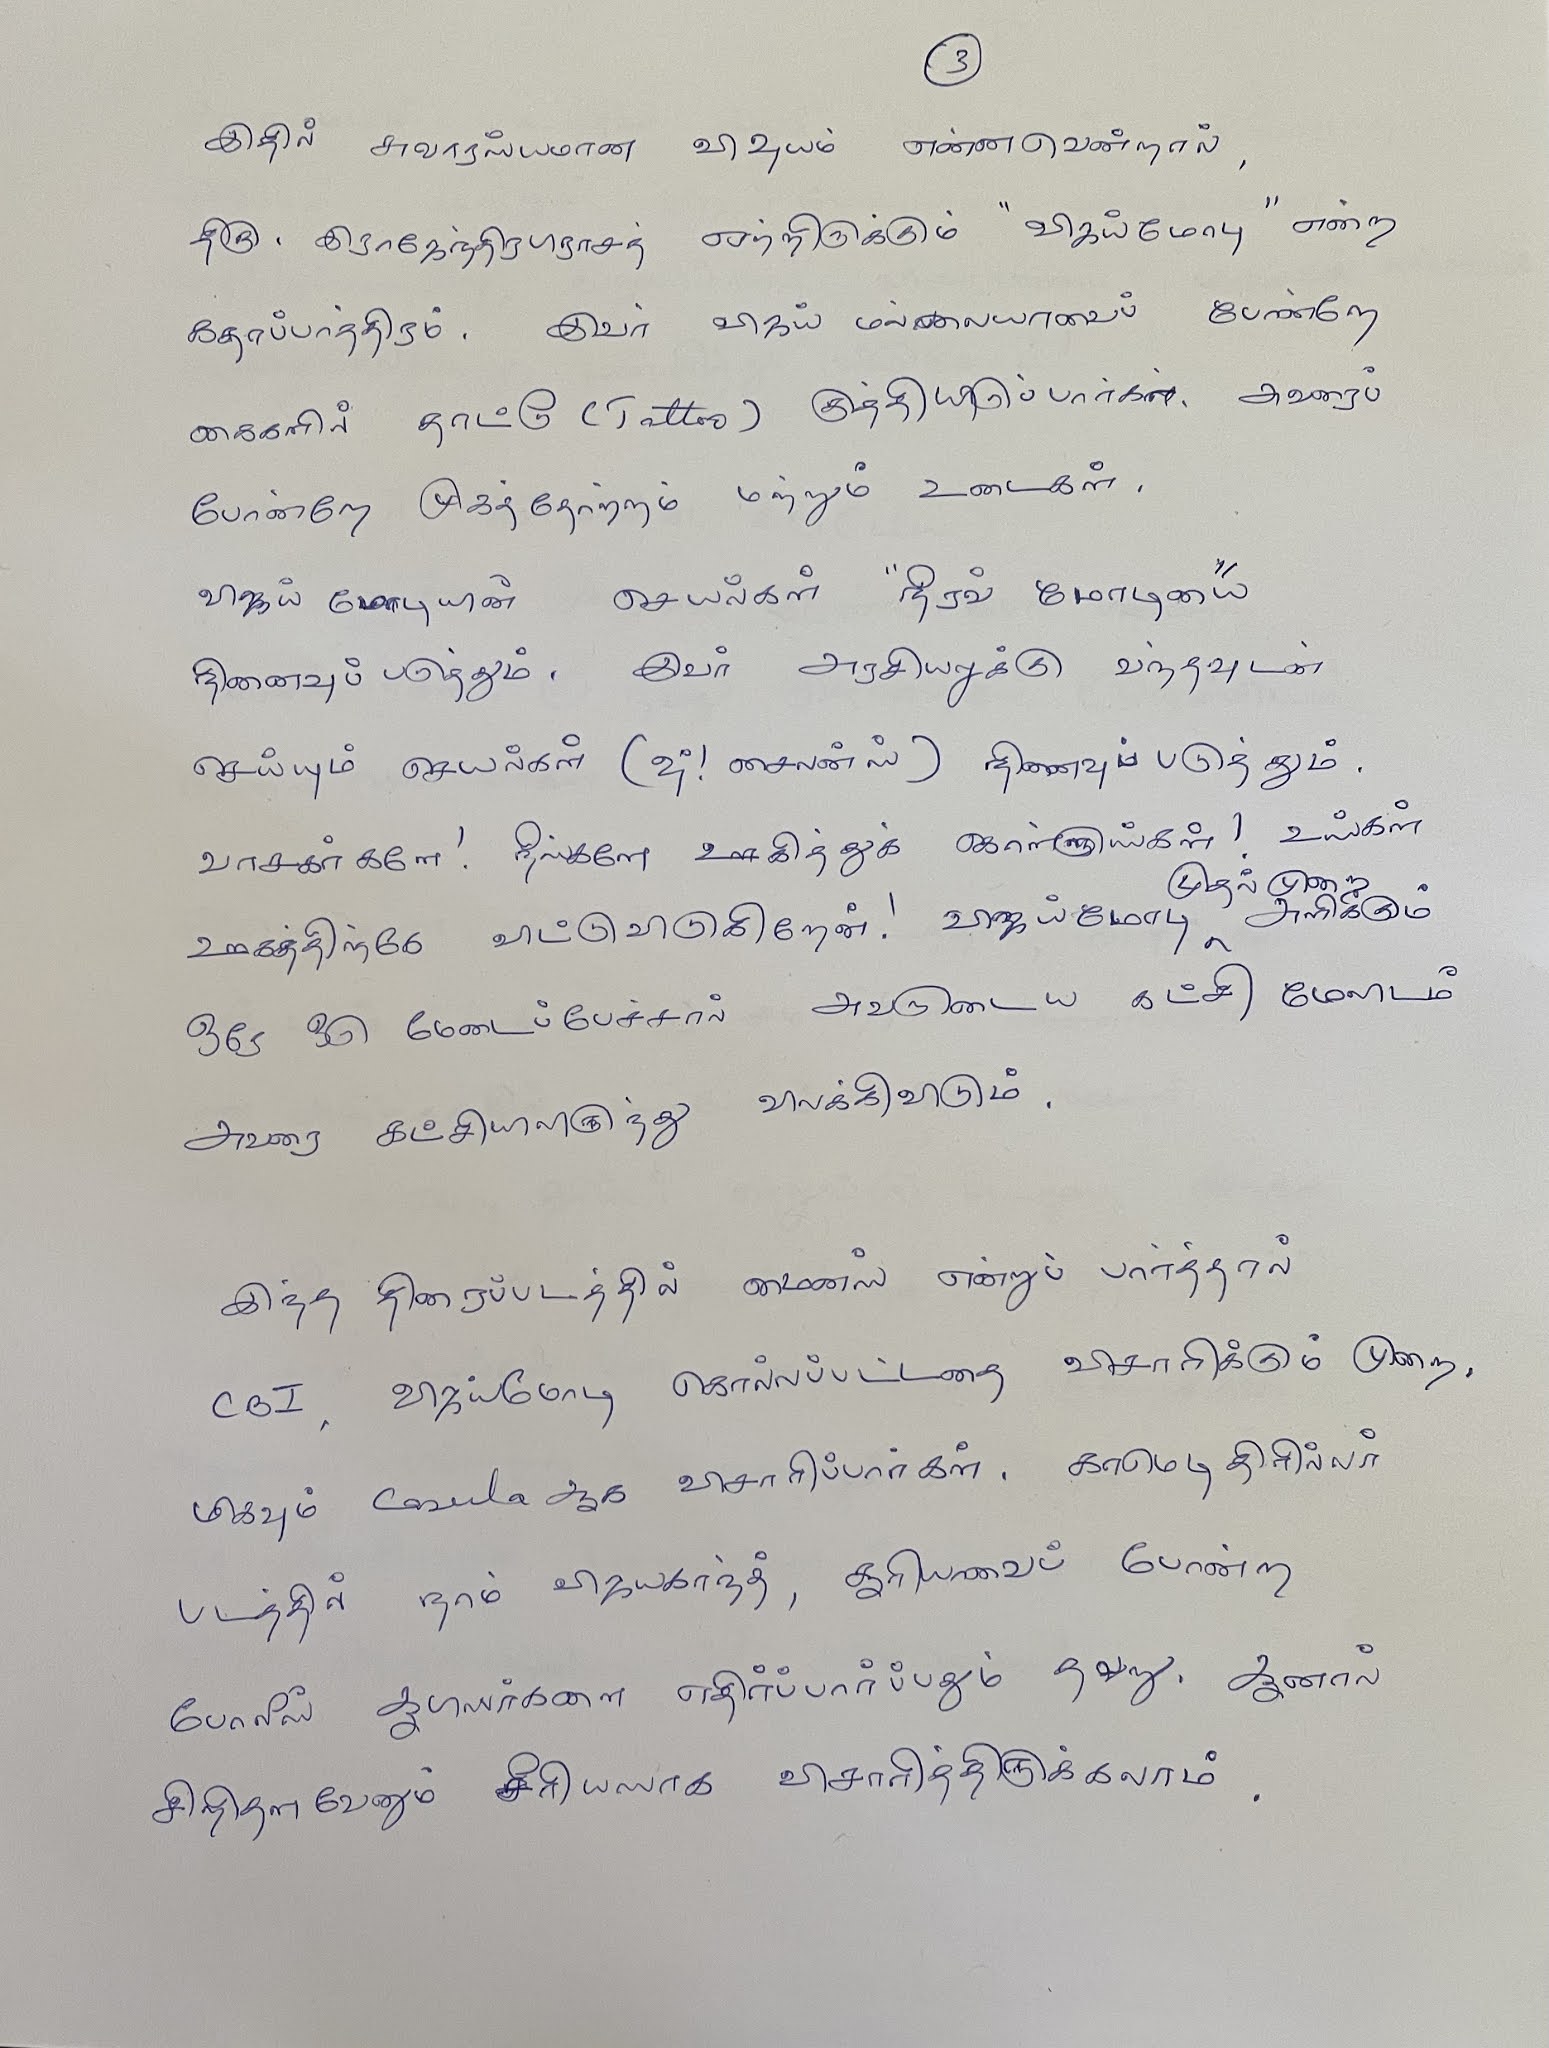 3
இதில் சுவாரஸ்யமான விஷயம் என்னவென்றால்,
திரு. இராஜேந்திரபிரசாத் ஏற்றிருக்கும் "விஜய்மோடி" என்ற
கதாப்பாத்திரம். இவர் விஜய் மல்லையாவைப் போன்றே
கைகளில் தாட்டூ (Tattoo) குத்தியிருப்பார்கள். அவரைப்
போன்றே முகத்தோற்றம் மற்றும் உடைகள்.
விஜய் மோடியின் செயல்கள் "நீரவ் மோடியை"
நினைவுப்படுத்தும். இவர் அரசியலுக்கு வந்தவுடன்
செய்யும் செயல்கள் (ஷ்! சைலன்ஸ்) நினைவும்படுத்தும்.
வாசகர்களே! நீங்களே ஊகித்துக் கொள்ளுங்கள்! உங்கள்
முதல் முறை
ஊகத்திற்கே விட்டுவிடுகிறேன்! விஜய்மோடி அளிக்கும்
ஒரே ஒரு மேடைப்பேச்சால் அவருடைய கட்சி மேலிடம்
அவரை கட்சியிலிருந்து விலக்கிவிடும்.
இந்த திரைப்படத்தில் மைனஸ் என்றுப் பார்த்தால்
CBI, விஜய்மோடி கொல்லப்பட்டதை விசாரிக்கும் முறை.
மிகவும் Casulaஆக விசாரிப்பார்கள். காமெடி திரில்லர்
படத்தில் நாம் விஜயகாந்த், சூரியாவைப் போன்ற
போலீஸ் ஆபிஸர்களை எதிர்ப்பார்ப்பதும் தவறு. ஆனால்
சிறிதளவேனும் சீரியஸாக விசாரித்திருக்கலாம்.